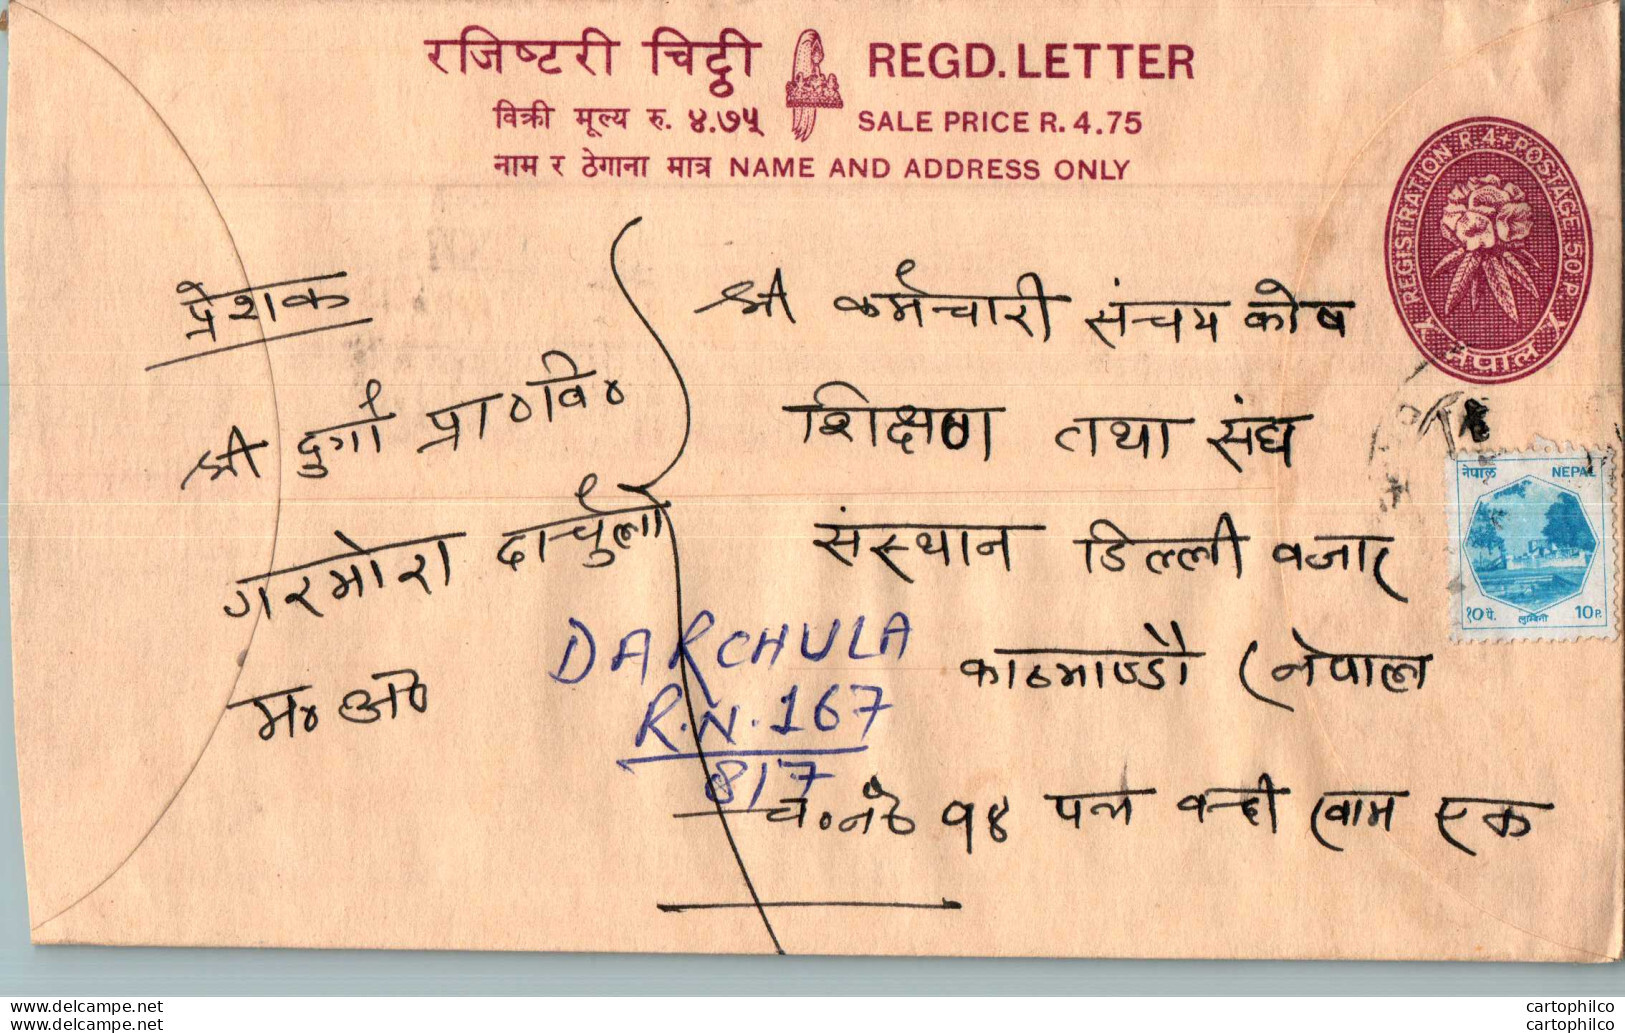 रजिष्टरी चिट्ठी REGD. LETTER
विक्री मूल्य रु. ४.७५ SALE PRICE R. 4.75
नाम र ठेगाना मात्र NAME AND ADDRESS ONLY
REGISTRATION R.4. POSTAGE 50 P.
नेपाल
प्रेशक
श्री दुर्गा प्रा०वि०
गरमोरा दार्चुला
श्री कर्मचारी संचय कोष
शिक्षण तथा संघ
संस्थान डिल्ली वजार
काठमाण्डौ (नेपाल
च.नं० १४ पत्र वन्दी खाम एक
DARCHULA
R.N. 167
8/7
नेपाल NEPAL
१० पै. लुम्बिनी 10 P.
www.delcampe.net cartophilco
www.delcampe.net cartophilco